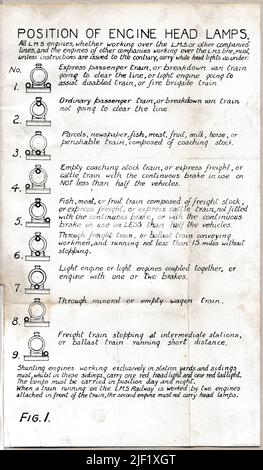 POSITION OF ENGINE HEAD LAMPS.
All L.M.S engines, whether working over the L.M.S. or other companies'
lines, and the engines of other companies working over the L.M.S line, must,
unless instructions are issued to the contrary, carry white head lights as under:
No.
Express passenger train, or breakdown van train
going to clear the line, or light engine going to
1. assist disabled train, or fire brigade train.
Ordinary passenger train, or breakdown van train
not going to clear the line.
2.
Parcels, newspaper, fish, meat, fruit, milk, horse, or
perishable train, composed of coaching stock.
3.
Empty coaching stock train, or express freight, or
cattle train with the continuous brake in use on
4. NOT less than half the vehicles.
Fish, meat, or fruit train composed of freight stock,
or express freight, or express cattle train, not fitted
with the continuous brake, or with the continuous
5. brake in use on LESS than half the vehicles.
Through freight train, or ballast train conveying
workmen, and running not less than 15 miles without
6. stopping.
Light engine or light engines coupled together, or
engine with one or two brakes.
7.
Through mineral or empty wagon train.
8.
Freight train stopping at intermediate stations,
or ballast train running short distance.
9.
Shunting engines working exclusively in station yards and sidings
must, whilst in these sidings, carry one red headlight and one red tail light.
The lamps must be carried in position day and night.
When a train running on the LMS Railway is worked by two engines
attached in front of the train, the second engine must not carry head lamps.
FIG. 1.
alamy
Image ID: 2JF1XGT
www.alamy.com